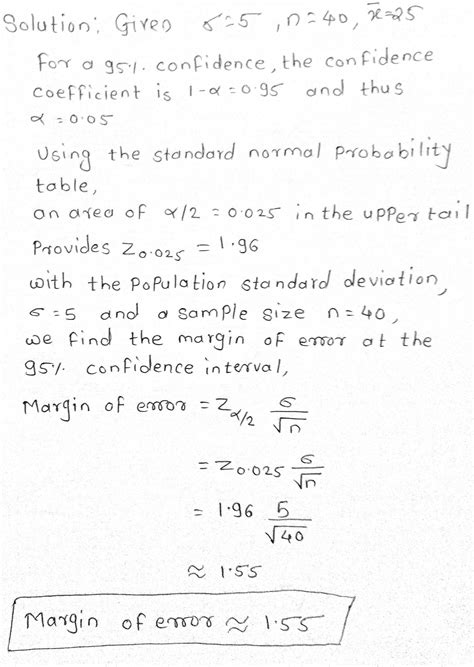 Solution: Given σ=5, n=40, x̄=25
For a 95%. confidence, the confidence
coefficient is 1-α=0.95 and thus
α=0.05
Using the standard normal probability
table,
an area of α/2=0.025 in the upper tail
Provides Z0.025 = 1.96
with the population standard deviation,
σ=5 and a sample size n=40,
we find the margin of error at the
95%. confidence interval,
Margin of error = Zα/2 σ/√n
= Z0.025 σ/√n
= 1.96 5/√40
≈ 1.55
Margin of error ≈ 1.55